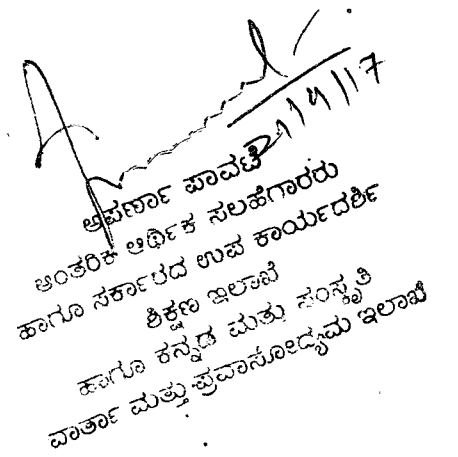 21/9/17
ಅಪರ್ಣಾ ಪಾವಟೆ
ಆಂತರಿಕ ಆರ್ಥಿಕ ಸಲಹೆಗಾರರು
ಹಾಗೂ ಸರ್ಕಾರದ ಉಪ ಕಾರ್ಯದರ್ಶಿ
ಶಿಕ್ಷಣ ಇಲಾಖೆ
ಹಾಗೂ ಕನ್ನಡ ಮತ್ತು ಸಂಸ್ಕೃತಿ
ವಾರ್ತಾ ಮತ್ತು ಪ್ರವಾಸೋದ್ಯಮ ಇಲಾಖೆ